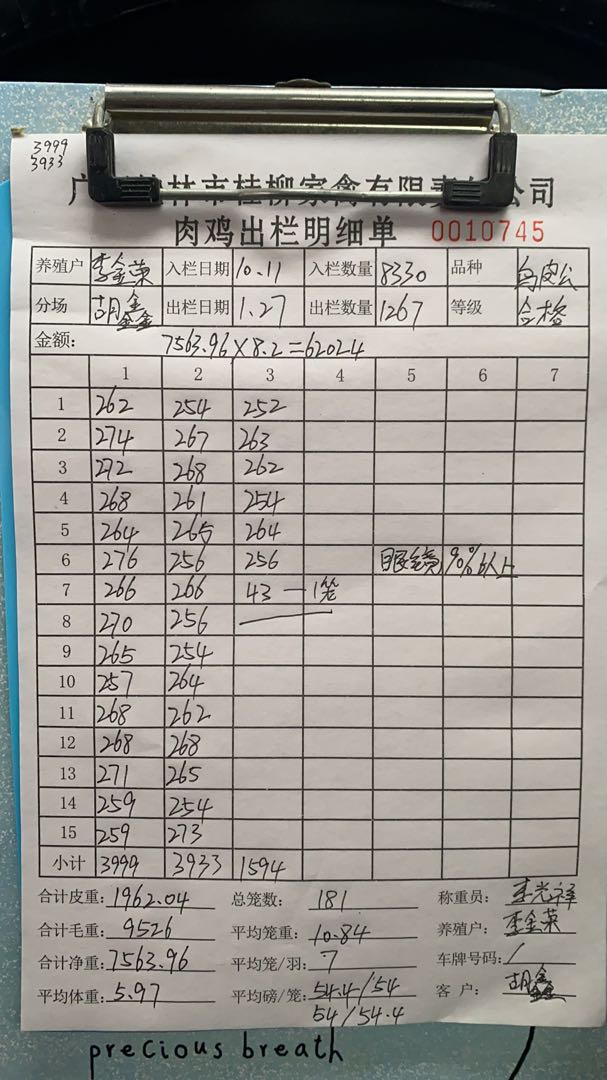 3999
3933
林市桂柳家禽有限责 公司
肉鸡出栏明细单 0010745
养殖户 李金荣 入栏日期 10.11 入栏数量 8330 品种 乌皮公
分场 胡鑫鑫 出栏日期 1.27 出栏数量 1267 等级 合格
金额: 7563.96×8.2=62024
1 2 3 4 5 6 7
1 262 254 252
2 274 267 263
3 272 268 262
4 268 261 254
5 264 265 264
6 276 256 256 眼镜 90%以上
7 266 266 43 — 1笼
8 270 256
9 265 254
10 257 264
11 268 262
12 268 268
13 271 265
14 259 254
15 259 273
小计 3999 3933 1594
合计皮重: 1962.04 总笼数: 181 称重员: 李光祥
合计毛重: 9526 平均笼重: 10.84 养殖户: 李金荣
合计净重: 7563.96 平均笼/羽: 7 车牌号码: /
平均体重: 5.97 平均磅/笼: 54.4/54 客户: 胡鑫鑫
54/54.4
precious breath